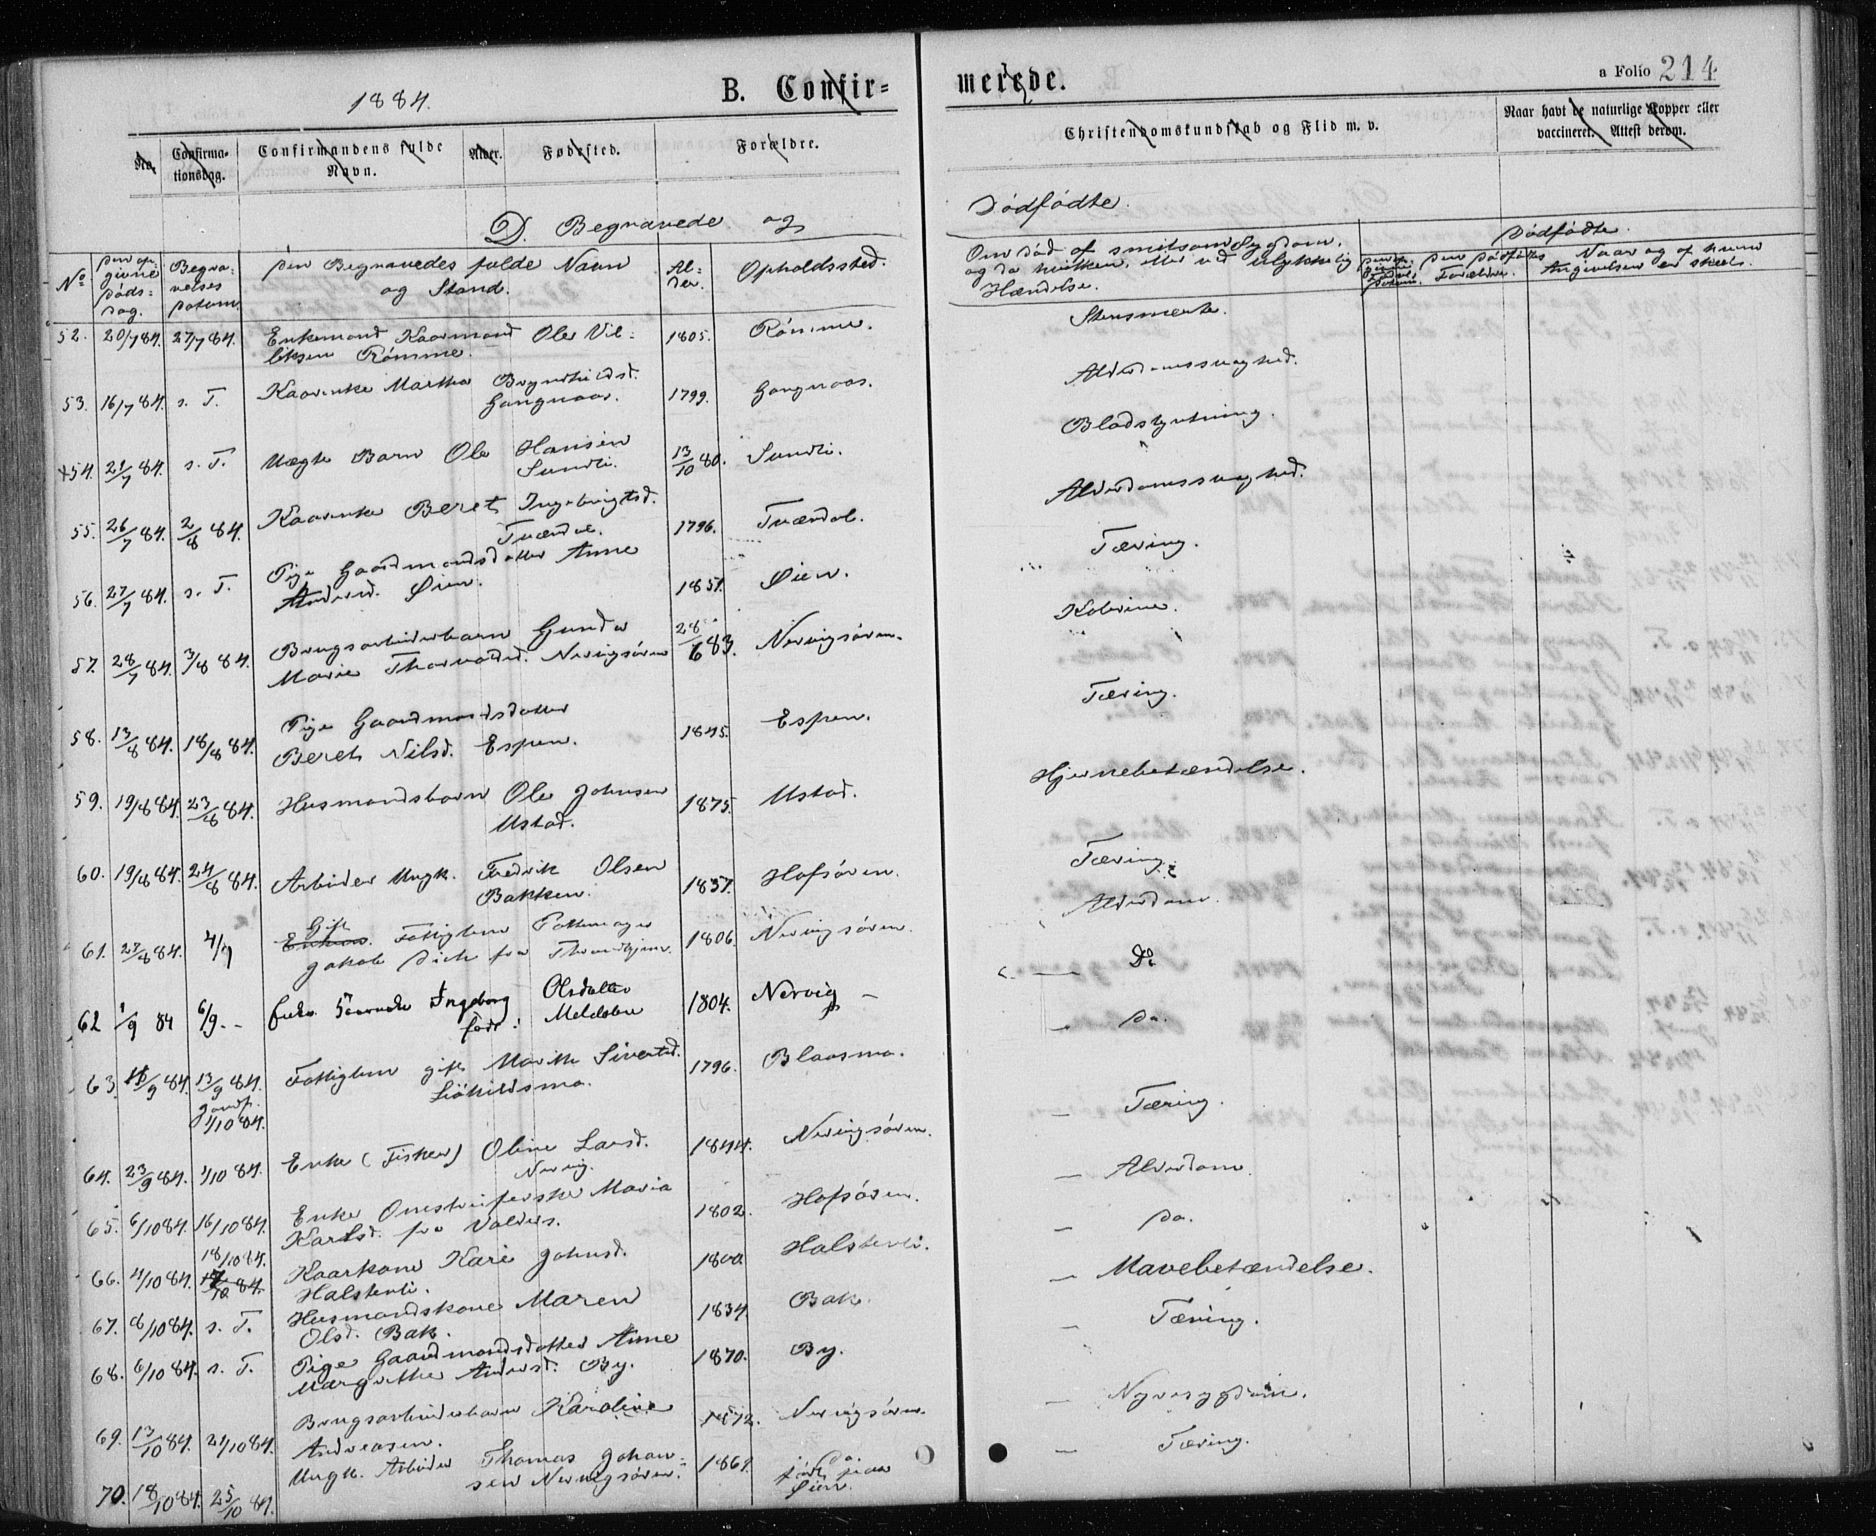 1884.
B. Confir=
merede.
a Folio 214
No.
Confirma-
tionsdag.
Confirmandens fulde
Navn.
Alder.
Fødested.
Forældre.
Christendomskundskab og Flid m. v.
Naar havt de naturlige Kopper eller
vaccineret. Attest derom.
D. Begravede og
Dødfødte.
No
Den op-
givne
Døds-
dag.
Begra-
velses
Datum.
Den Begravedes fulde Navn
og Stand.
Al-
der.
Opholdssted.
Om Død af smitsom Sygdom,
og da hvilken, eller ved ulykkelig
Hændelse.
Dødfødte.
Den Dødfødtes
Forældre.
Naar og af hvem
Angivelsen er skeet.
52. 20/7 84. 27/7 84. Enkemand Kaarmand Ole Vil-
liksen Rømme. 1805. Rømme. Stensmerte.
53. 16/7 84. s. T. Kaarenke Marthe Bryndhildsd.
Gangnaas. 1799. Gangnaas. Alderdomssvaghed.
54. 21/7 84. s. T. Uægte Barn Ole Hansen
Sundli. 13/10 80. Sundli. Blodstyrtning.
55. 26/7 84. 2/8 84. Kaarenke Beret Ingebrigtsd.
Tværdal. 1796. Tværdal. Alderdomssvaghed.
56. 27/7 84. s. T. Pige Gaardmandsdatter Anne
Andersd. Øien. 1851. Øien. Tæring.
57. 28/7 84. 3/8 84. Brugsarbeiderbarn Gunda
Marie Thorvaldsd. Nervigsøren 28/6 83. Nervigsøren. Kolerine.
58. 13/8 84. 18/8 84. Pige Gaardmandsdatter
Beret Nilsd. Espen. 1845. Espen. Tæring.
59. 19/8 84. 23/8 84. Husmandsbarn Ole Johnsen
Ustad. 1875. Ustad. Hjernebetændelse.
60. 19/8 84. 24/8 84. Arbeider Ungk. Fredrik Olsen
Bakken. 1837. Hofsøren. Tæring.
61. 27/8 84. 4/9 Gift
Fattiglem Pottemager
Jakob Dick fra Throndhjem. 1806. Nervigsøren. Alderdom.
62 1/9 84 6/9. - Enke Kaarenke Ingeborg Olsdatter
født: Meldalen 1804. Nervig - Do
63. 11/9 84. 13/9 84. Fattiglem gift Marit Sivertsd.
Jordf.
1/10 84. 1796. Blaasmo. Do.
64. 23/9 84. 1/10 84. Enke (Fisker) Oline Larsd.
Nervig. 1844. Nervigsøren. Tæring.
65. 6/10 84. 16/10 84. Enke Maria
Karlsd. fra Valders. 1802. Hofsøren. Alderdom.
66. 4/10 84. 18/10 84. Kaarkone Kari Johnsd.
Halstenli. 1800. Halstenli. Do.
67. 8/10 84. s. T. Husmandskone Maren
Olsd. Bak. 1834. Bak. Mavebetændelse.
68. 6/10 84. s. T. Pige Gaardmandsdatter Anne
Margrethe Andersd. By. 1870. By. Tæring.
69. 13/10 84. 21/10 84. Brugsarbeiderbarn Karoline
Andreasen. 1872. Nervigsøren. Nyresygdom.
70. 18/10 84. 25/10 84. Ungk. Arbeider Thomas Johan-
sen Nervigsøren. 1861. Do.
født paa
Øien. Tæring.